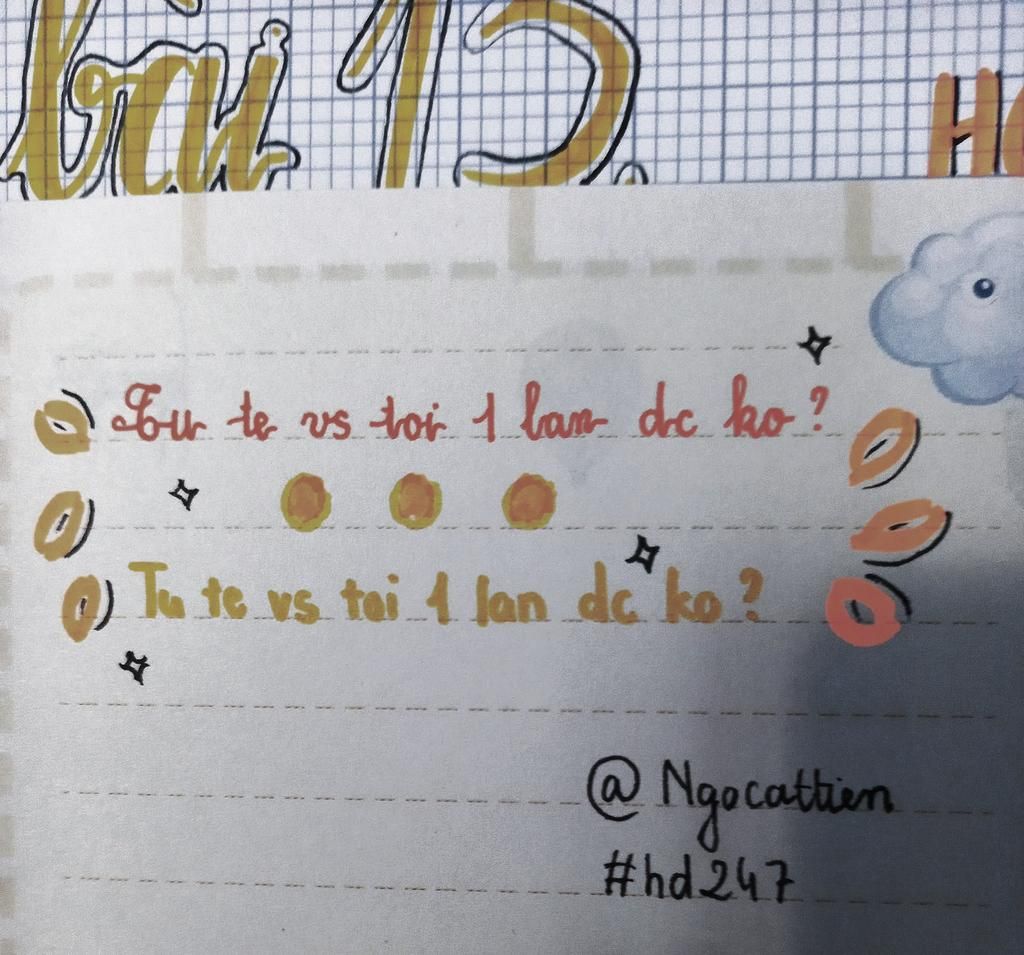 bai 15.
Tu te vs toi 1 lan dc ko?
Tu te vs toi 1 lan dc ko?
@Ngocattien
#hd247